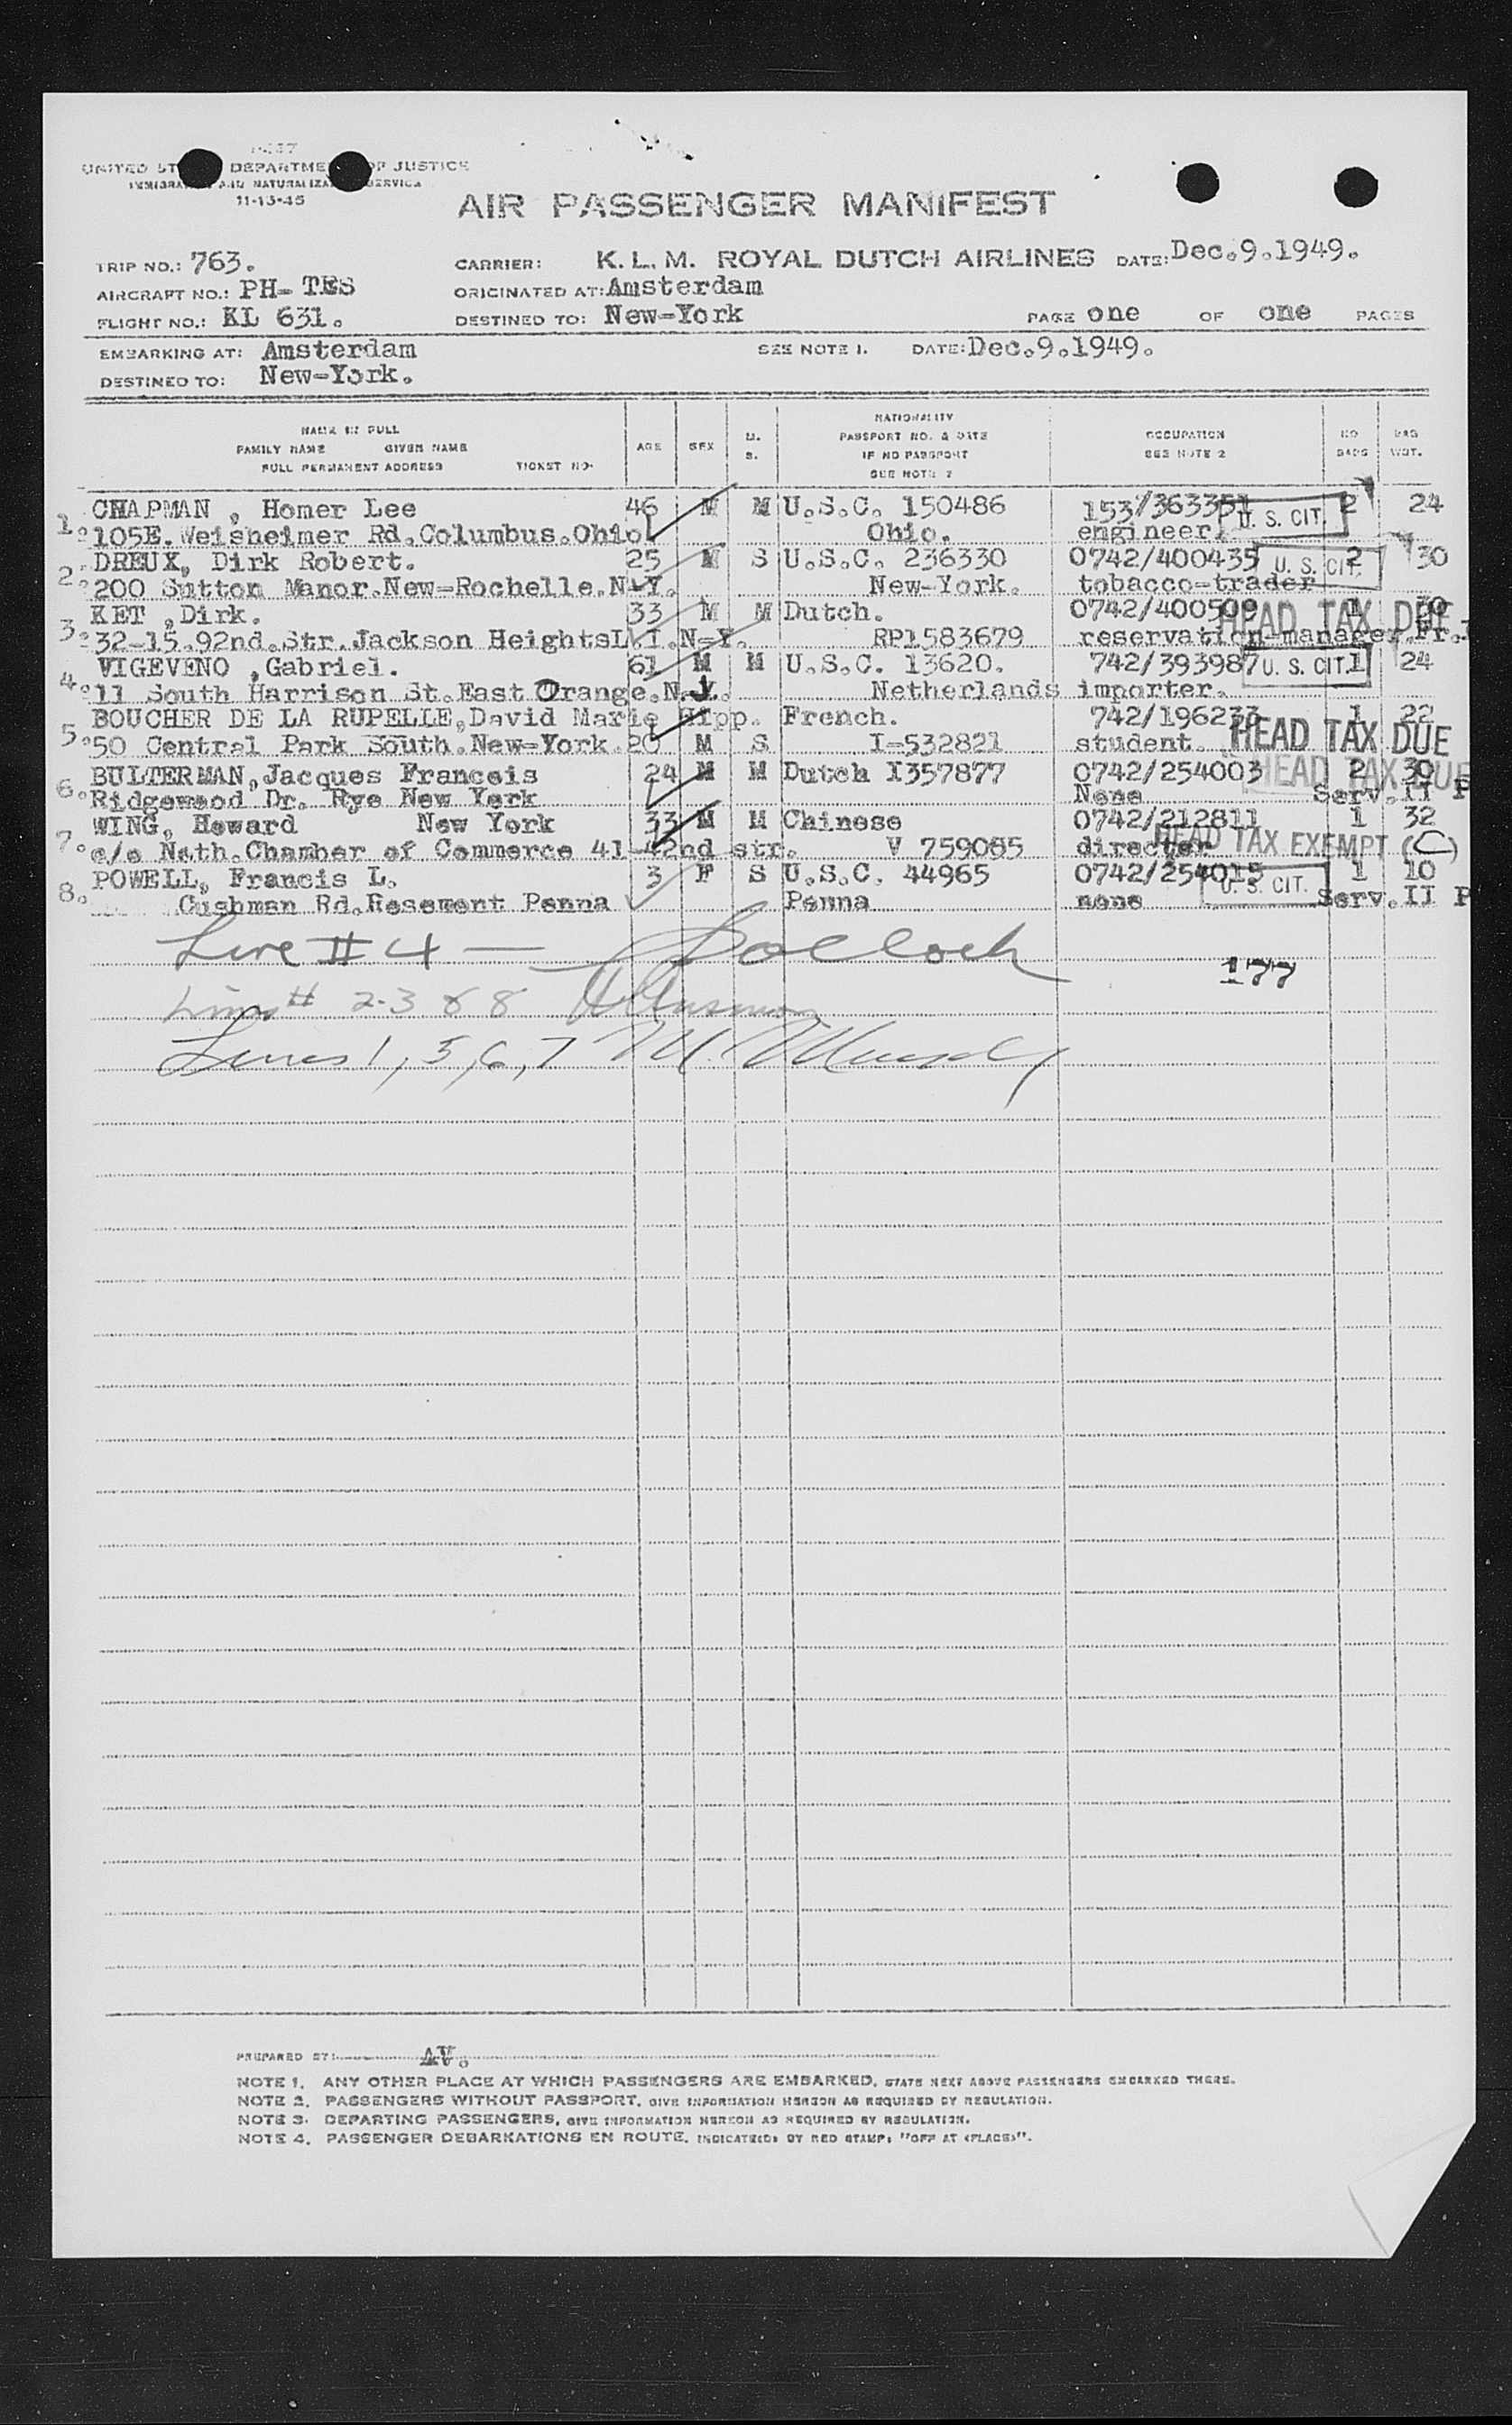 UNITED ST DEPARTME OF JUSTICE
IMMIGRA AND NATURALIZA SERVICE
11-13-45
AIR PASSENGER MANIFEST
TRIP NO.: 763. CARRIER: K.L.M. ROYAL DUTCH AIRLINES DATE: Dec.9.1949.
AIRCRAFT NO.: PH-TES ORIGINATED AT: Amsterdam
FLIGHT NO.: KL 631. DESTINED TO: New-York PAGE one OF one PAGES
EMBARKING AT: Amsterdam SEE NOTE 1. DATE: Dec.9.1949.
DESTINED TO: New-York.
NAME IN FULL NATIONALITY
FAMILY NAME GIVEN NAME AGE SEX M. PASSPORT NO. & DATE OCCUPATION NO BAG
S. IF NO PASSPORT SEE NOTE 2 BAGS WGT.
FULL PERMANENT ADDRESS TICKET NO. SEE NOTE 2
1. CHAPMAN , Homer Lee 46 M M U.S.C. 150486 153/363351 U. S. CIT. 2 24
105E.Weisheimer Rd.Columbus.Ohio Ohio. engineer.
2. DREUX, Dirk Robert. 25 M S U.S.C. 236330 0742/400435 U. S. CIT. 2 30
200 Sutton Manor.New-Rochelle.N-Y. New-York. tobacco-trader
3. KET ,Dirk. 33 M M Dutch. 0742/400509 HEAD TAX DUE 1 30
32-15.92nd.Str.Jackson HeightsL.I.N-Y. RP1583679 reservation-manager.Fr.
4. VIGEVENO ,Gabriel. 61 M M U.S.C. 13620. 742/393987 U. S. CIT. 1 24
11 South Harrison St.East Orange.N.J. Netherlands importer.
5. BOUCHER DE LA RUPELLE,David Marie Hipp. French. 742/196233 HEAD TAX DUE 1 22
50 Central Park South.New-York. 20 M S I-532821 student.
6. BULTERMAN,Jacques Francois 24 M M Dutch I357877 0742/254003 HEAD TAX DUE 2 30
Ridgewood Dr. Rye New York None Serv.II P
7. WING, Howard New York 33 M M Chinese 0742/212811 1 32
c/o Neth.Chamber of Commerce 41-42nd str. V 759085 director HEAD TAX EXEMPT (C)
8. POWELL, Francis L. 3 F S U.S.C. 44965 0742/254015 U. S. CIT. 1 10
Cushman Rd.Rosemont Penna Penna none Serv.II P
Line # 4 —
177
Lines # 2-3 & 8
Lines 1, 5, 6, 7 M.
PREPARED BY: AV.
NOTE 1. ANY OTHER PLACE AT WHICH PASSENGERS ARE EMBARKED, STATE NEXT ABOVE PASSENGERS EMBARKED THERE.
NOTE 2. PASSENGERS WITHOUT PASSPORT, GIVE INFORMATION HEREON AS REQUIRED BY REGULATION.
NOTE 3. DEPARTING PASSENGERS, GIVE INFORMATION HEREON AS REQUIRED BY REGULATION.
NOTE 4. PASSENGER DEBARKATIONS EN ROUTE, INDICATED: BY RED STAMP: "OFF AT (PLACE)".